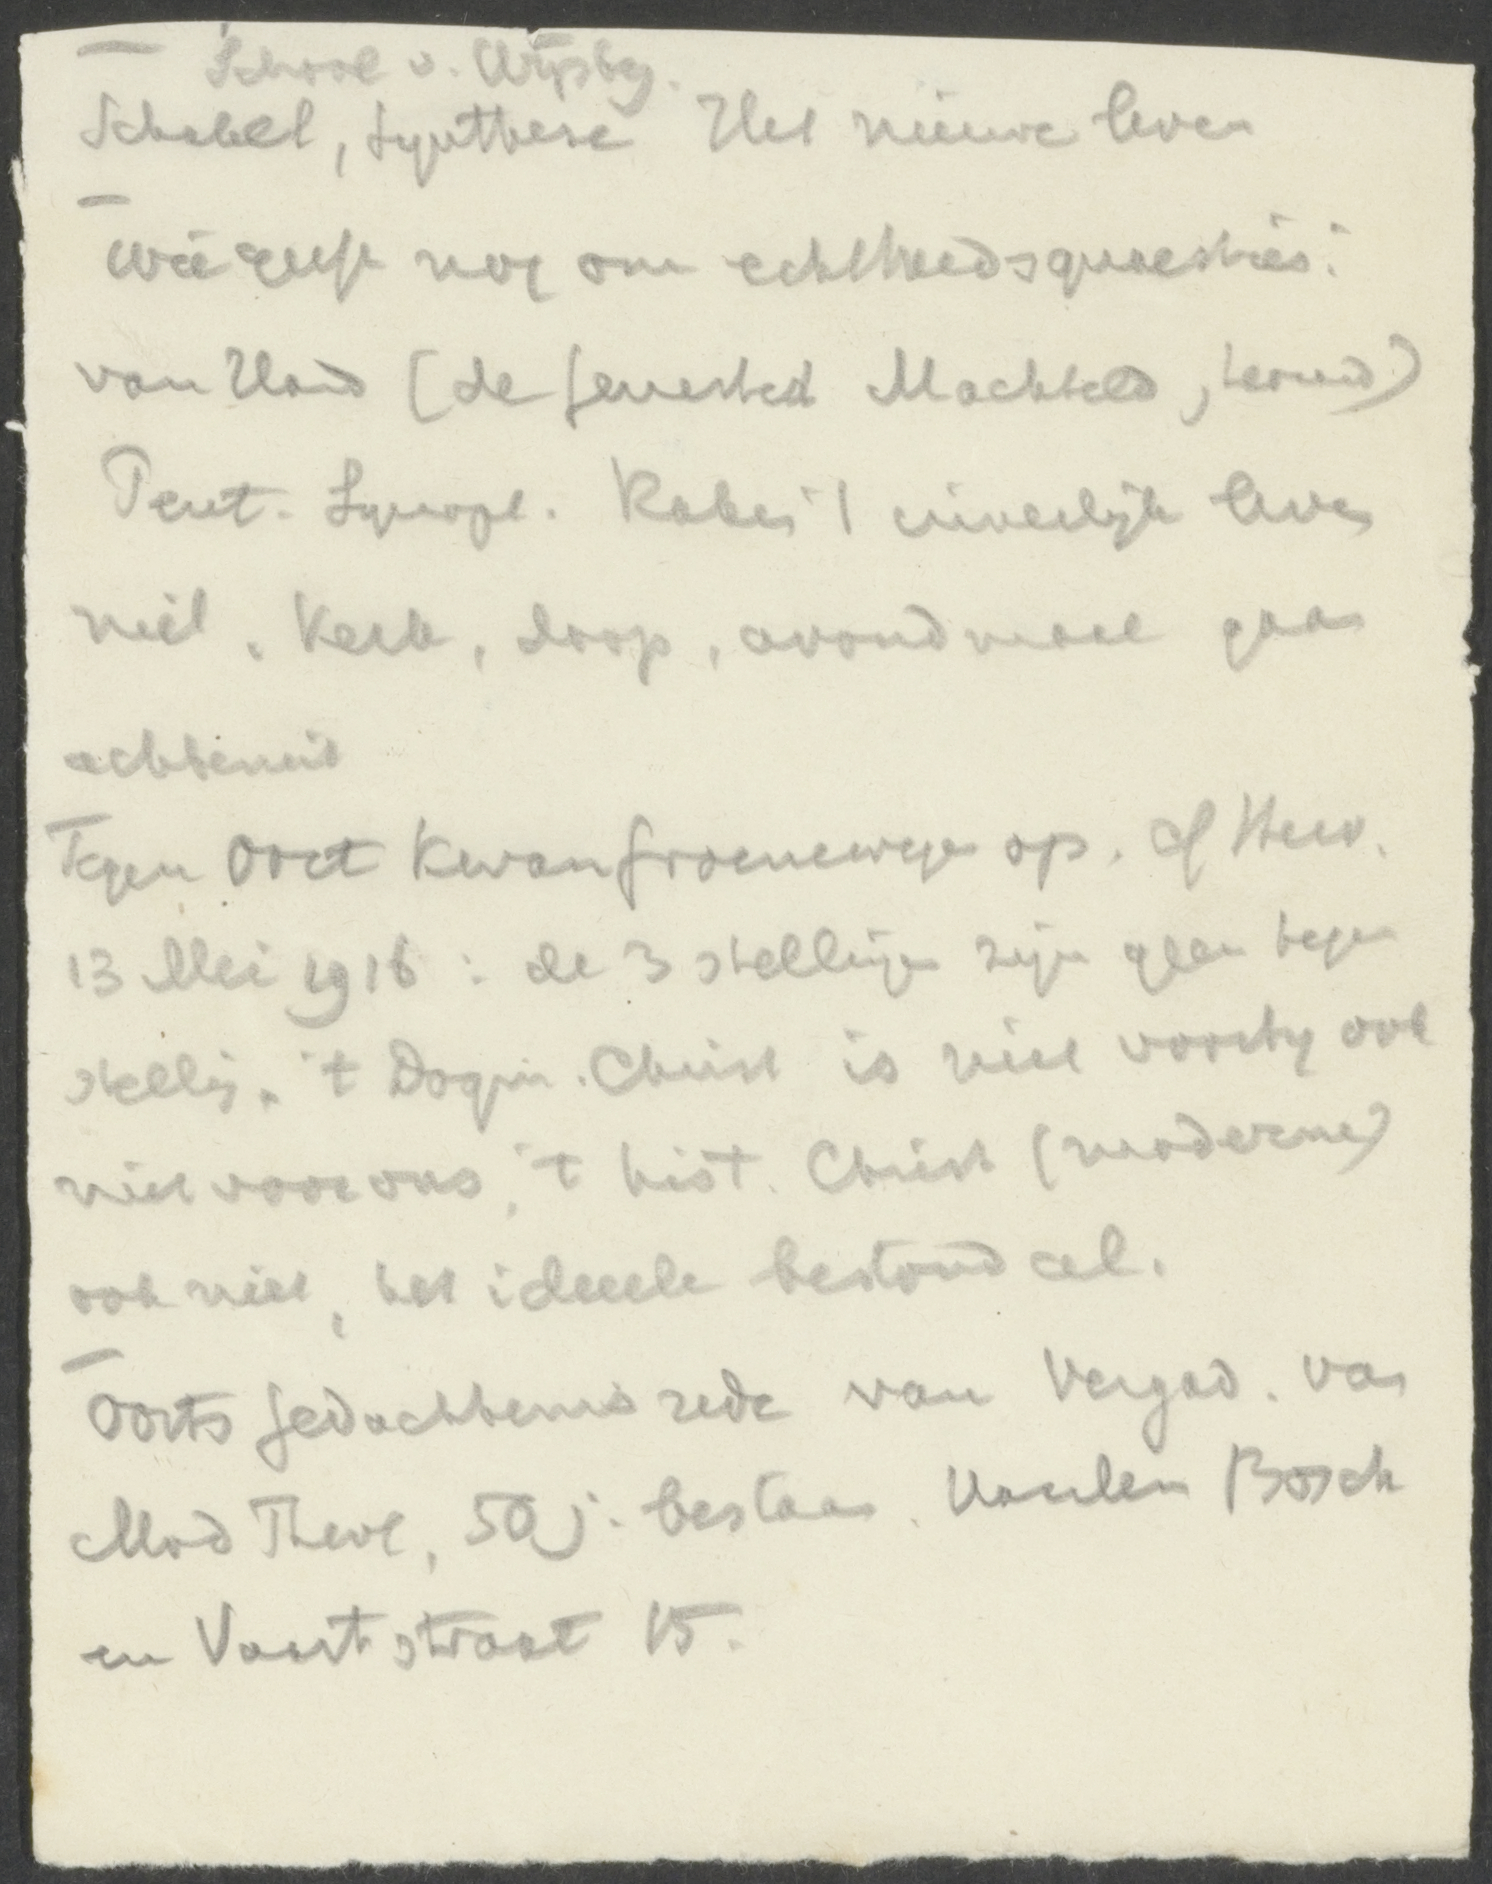 School v. Wijsbeg.
Schakel, Synthese Het nieuwe leven
Wie geeft nog om echtheidsquaesties:
van Hand (de Genestet Machteld,
Pent. Synopt. Raken 't innerlijk leven
niet. Kerk, doop, avondmaal gaan
achteruit
Tegen Oort kwam Groenewegen op. cf Herv.
13 Mei 1916 : de 3 stellingen zijn geen tegen
stellig. 't Dogm. Christ is niet voorbij ook
niet voor ons, 't hist. Christ (moderne)
ook niet, het ideeele bestond al.
Oorts gedachtenisrede van Vergad. van
Mod Theol, 50 j. bestaan. v. Bosch
en Vaartstraat 15.